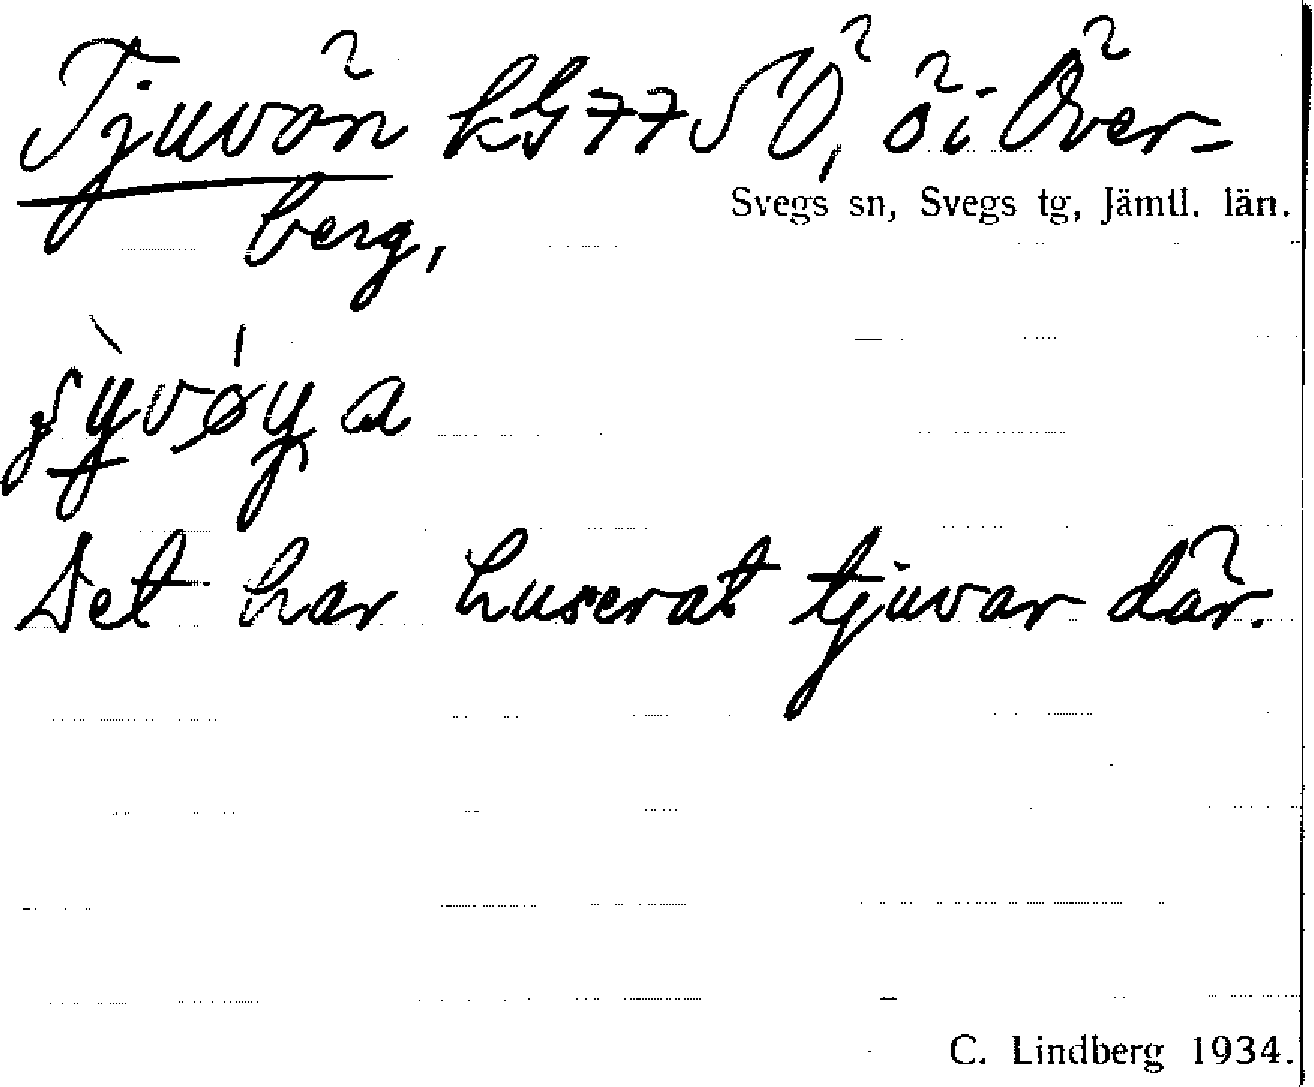 Tjuvön kG77SÖ, ö i Över-
berg,
Svegs sn, Svegs tg, Jämtl. län.
Det har huserat tjuvar där.
C. Lindberg 1934.